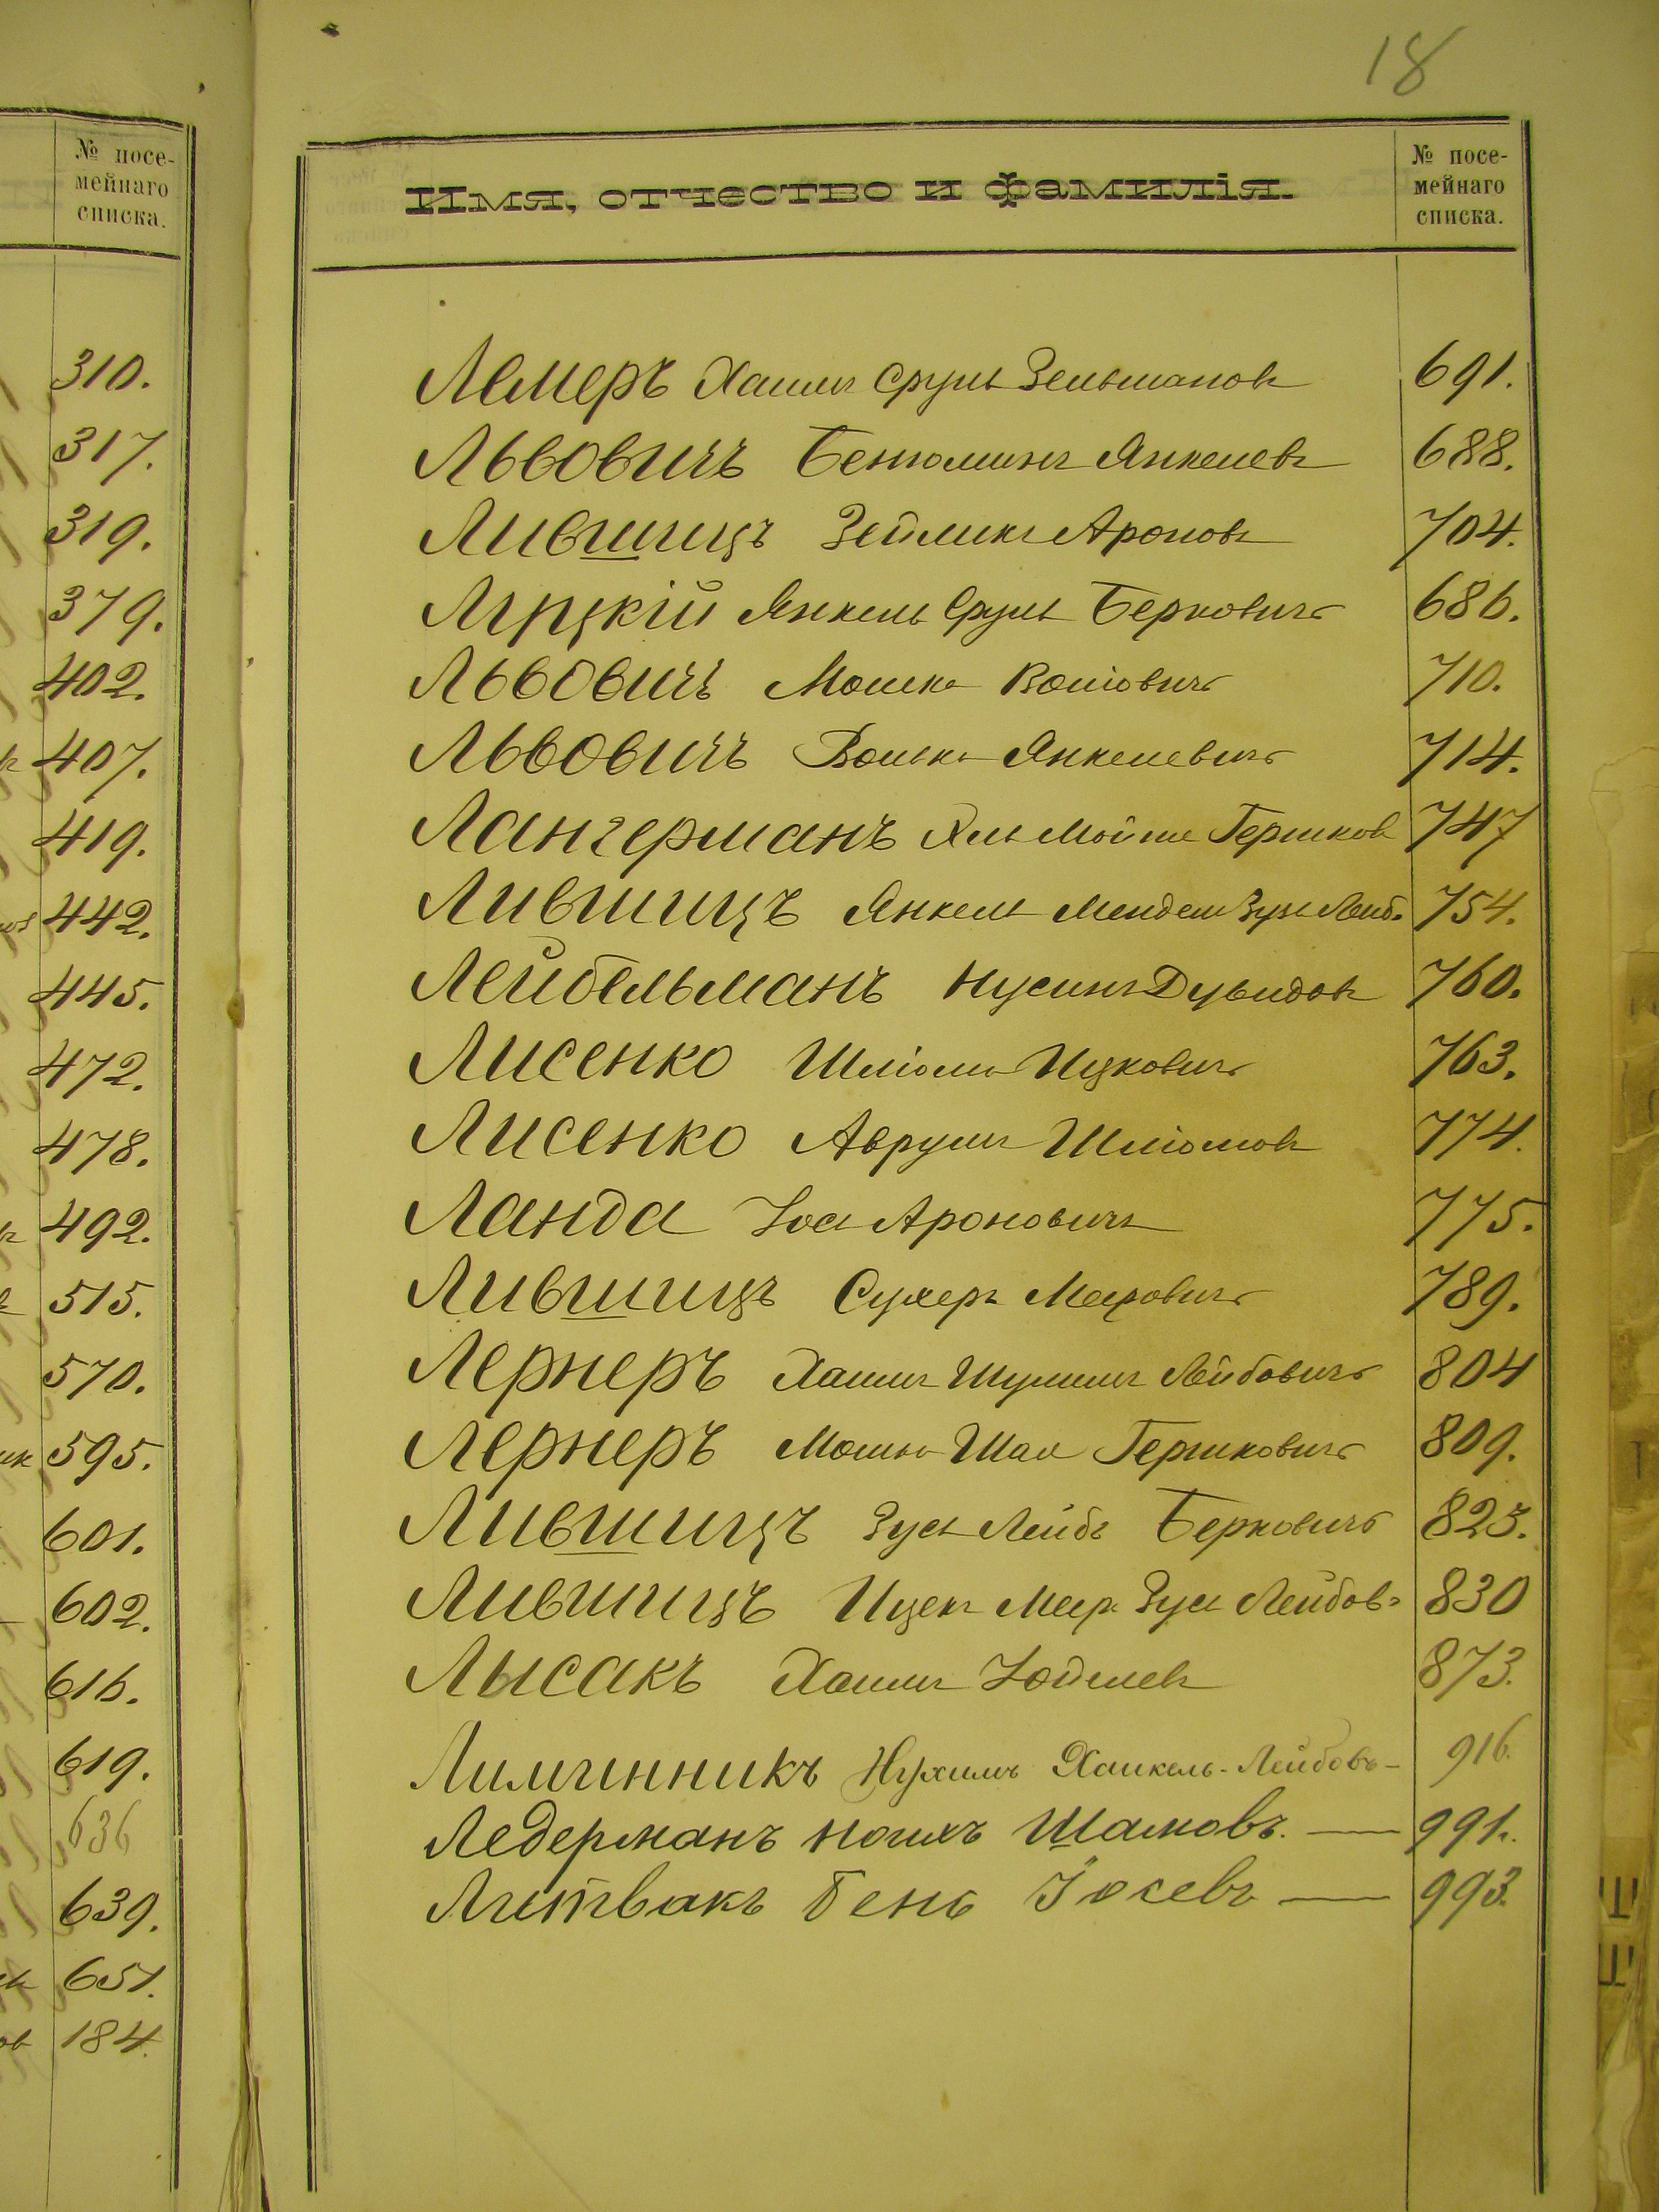 № посе-
мейнаго
списка.
310.
317.
319.
379.
402.
407.
419.
442.
445.
472.
478.
492.
515.
570.
595.
601.
602.
616.
619.
636
639.
651.
184.
18
Имя, отчество и фамилія.
№ посе-
мейнаго
списка.
Лемеръ Хаимъ Сруль Зельмановъ 691.
Львовичъ Беніоминъ Янкелевъ 688.
Лившицъ Зейликъ Ароновъ 704.
Янкель Сруль Берковичъ 686.
Львовичъ Мошко 710.
Львовичъ Янкелевичъ 714.
Лангерманъ Мойше Гершков 747
Лившицъ Янкель Мендель Зусь Лейб. 754.
Лейбельманъ Нусинъ Дувидовъ 760.
Лисенко Шліома Ицковичъ 763.
Лисенко Аврумъ Шліомовъ 774.
Ланда Іось Ароновичъ 775.
Лившицъ Сухеръ Меровичъ 789.
Лернеръ Хаимъ Шулимъ Лейбовичъ 804
Лернеръ Мошко Шая Гершковичъ 809.
Лившицъ Зусь Лейбъ Берковичъ 823.
Лившицъ Ицекъ Меер Зусь Лейбовъ 830
Лысакъ Хаимъ Юделев 873.
Лимчинникъ Нухимъ Хаикель-Лейбовъ- 916.
Ледерманъ Шамовъ. — 991.
Литвакъ Бенъ Іосевъ — 993.